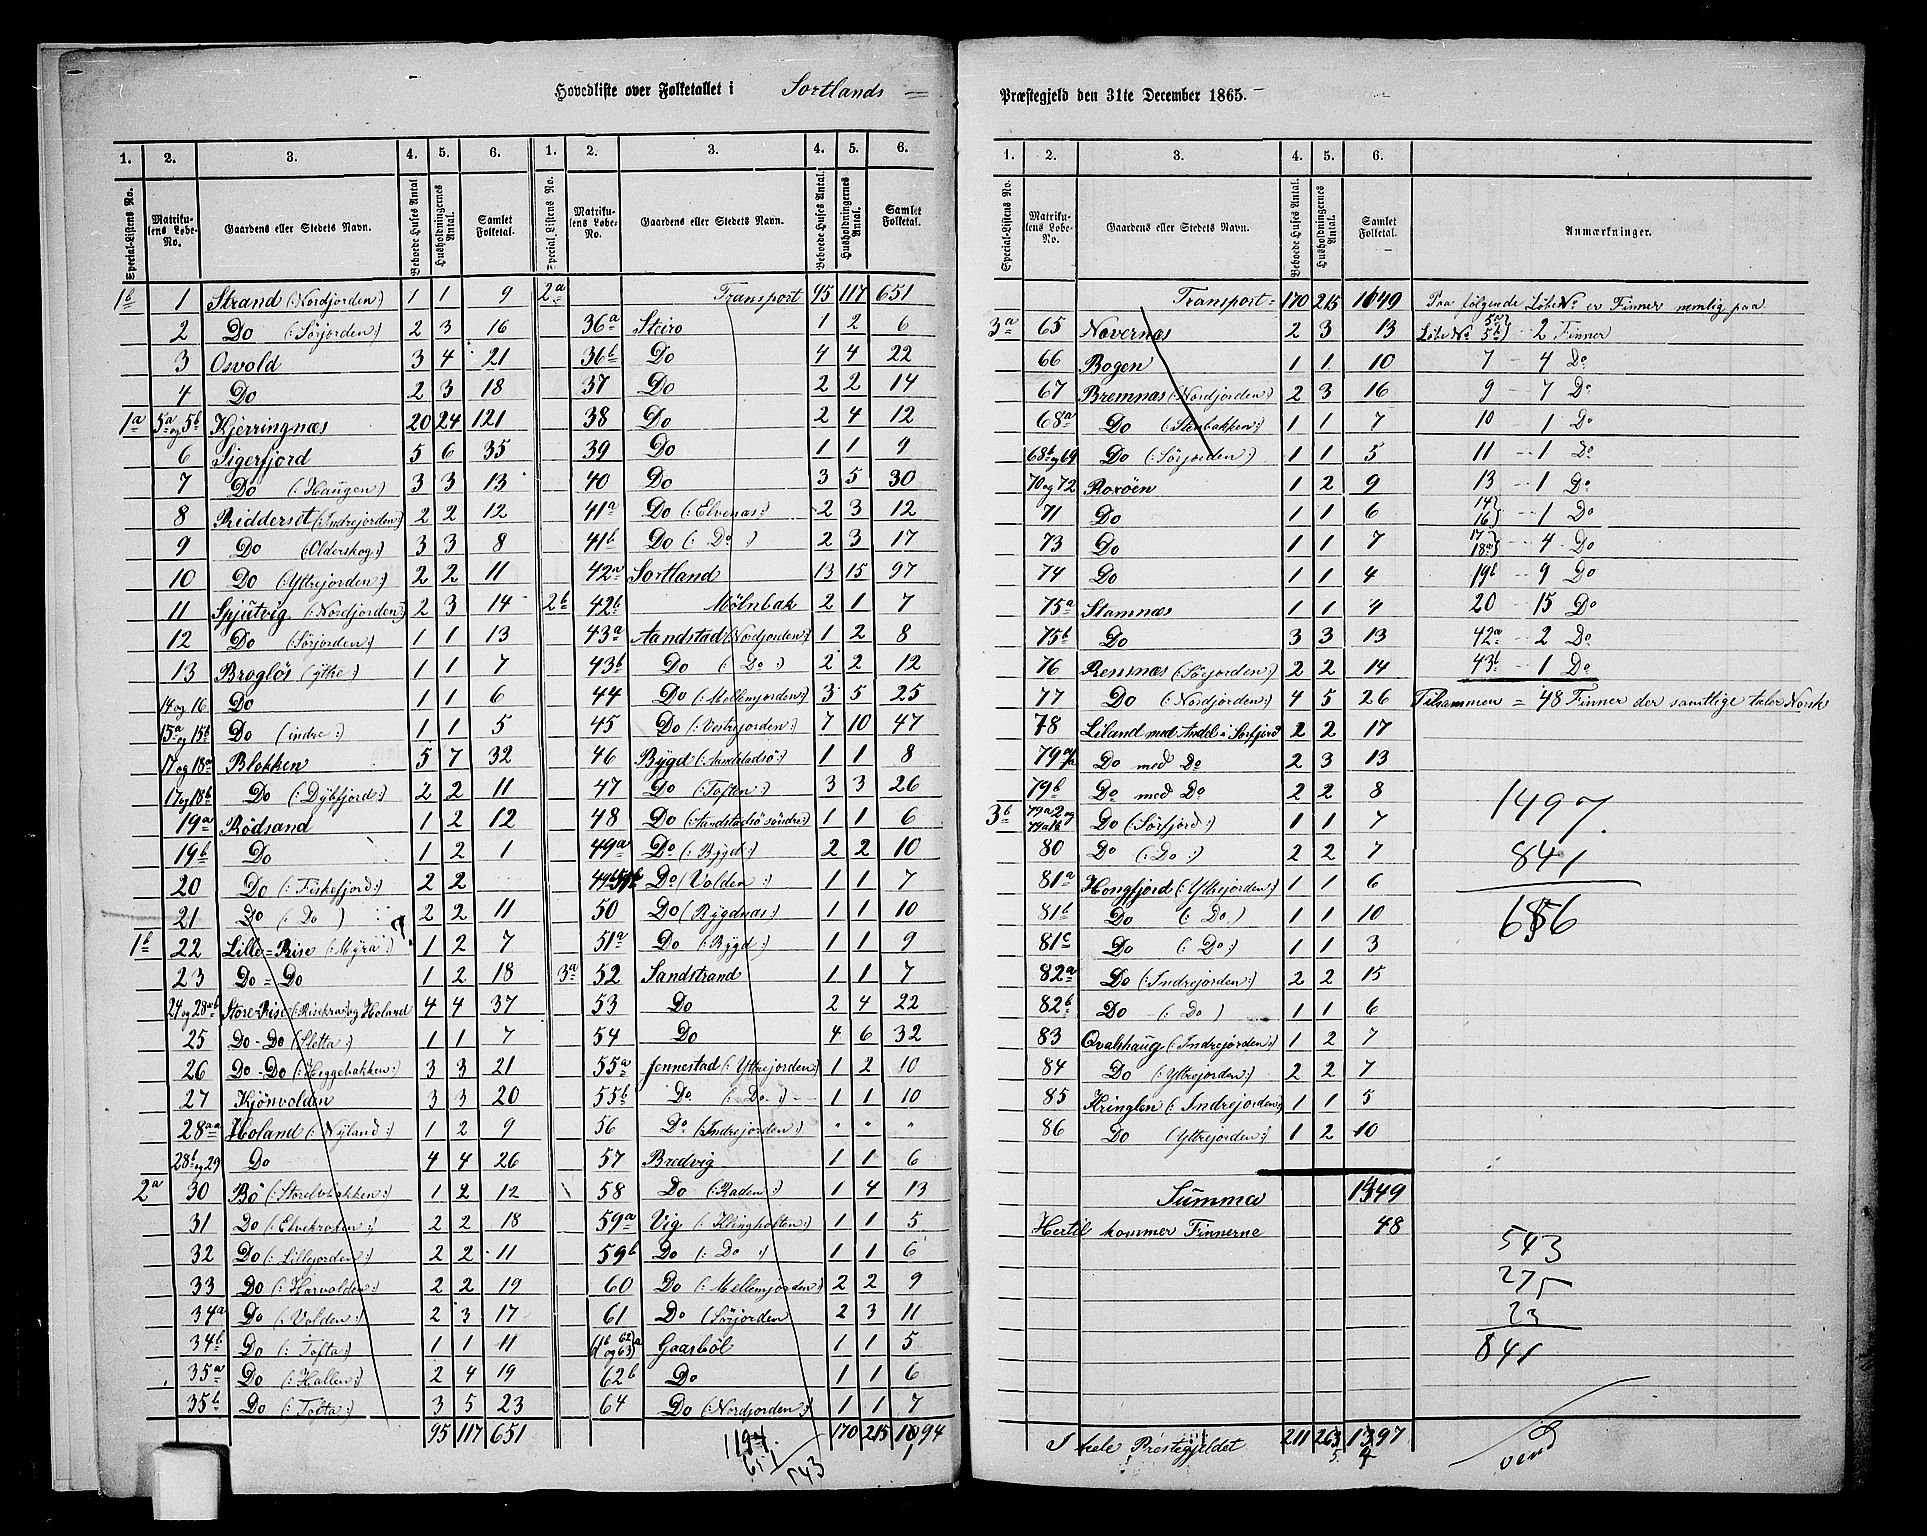 Hovedliste over Folketallet i Sortlands
Præstegjeld den 31te December 1865.
1. 2. 3. 4. 5. 6. 1. 2. 3. 4. 5. 6.
Special-Listens No. Matrikulens Løbe-No. Gaardens eller Stedets Navn. Beboede Huses Antal Husholdningernes Antal. Samlet Folketal. Special-Listens No. Matrikulens Løbe-No. Gaardens eller Stedets Navn. Beboede Huses Antal. Husholdningernes Antal. Samlet Folketal.
1b 1 Strand (Nordjorden) 1 1 9
2 Do (:Sörjorden:) 2 3 16
3 Osvold 3 4 21
4 Do 2 3 18
1a 5a og 5b Kjerringnæs 20 24 121
6 Sigerfjord 5 6 35
7 Do (:Haugen:) 3 3 13
8 Ridderset (:Indrejorden:) 2 2 12
9 Do (Olderskog:) 3 3 8
10 Do (Yttrejorden:) 2 2 11
11 Spjutvig (:Nordjorden) 2 3 14
12 Do (Sörjorden:) 1 1 13
13 Broglös (ytre:) 1 1 7
14 og 16 Do 1 1 6
15a og 15b Do (indre:) 1 1 5
17 og 18a Blokken 5 7 32
17 og 18b Do (:Dybfjord:) 2 2 11
19a Rödsand 1 2 12
19b Do 1 2 1
20 Do (:Fiskefjord:) 2 2
21 Do (:Do) 2 2 11
1b 22 Lille-Rise (:Myra:) 1 2 7
23 Do-Do 1 2 18
24 og 28ab Store-Rise (:Risekra:) og Holand 4 4 37
25 Do-Do (Sletta:) 1 1 7
26 Do-Do (:Heggebakken:) 3 3 21
27 Kjönvolden 3 3 20
28aa Holand (:Nyland:) 1 2 9
28b og 29 Do 4 4 26
2a 30 Bö (:Storelvbakken:) 1 2 12
31 Do (:Elvekroken:) 2 2 18
32 Do (:Lillejorden:) 2 2 11
33 Do (:Harvolden:) 2 2 19
34a Do (:Volden:) 2 3 17
34b Do (:Tofta:) 1 1 11
35a Do (:Hallen:) 2 4 19
35b Do (:Tofta:) 3 5 23
95 117 651
2a Transport 95 117 651
36a Steiro 1 2 6
36b Do 4 4 22
37 Do 2 2 14
38 Do 2 4 12
39 Do 1 1 9
40 Do 3 5 30
41a Do (:Elvenæs:) 2 3 12
41b Do (:Do) 2 3 17
42a Sortland 13 15 97
2b 42b Mölnbak 2 1 7
43a Aandstad (Nordjorden:) 1 2 8
43b Do (:Do:) 2 2 12
44 Do (:Mellemjorden:) 3 5 25
45 Do (:Vestrejorden:) 7 10 47
46 Bygd (:Aandstadsö:) 1 1 8
47 Do (:Toften:) 3 3 26
48 Do (:Aandstadsö söndre:) 1 1 6
49a Do (:Bygd:) 2 2 10
Do (Volden:) 1 1 7
50 Do (Bygdnæs:) 1 1 10
51a Do (:Bygd:) 1 1 9
3a 52 Sandstrand 1 1 7
53 Do 2 4 22
54 Do 4 6 32
55a Jennestad (:Yttrejorden:) 1 2 10
55b Do (:Do:) 1 1 10
56 Do (:Indrejorden:) " " "
57 Bredvig 1 1 6
58 Do (:Raden:) 1 4 13
59a Vig (:Klingholten:) 1 1 5
59b Do (:Do:) 1 1 6
60 Do (:Mellemjorden:) 2 2 9
61 Do (Sörjorden 2 3 11
Gaasböl 1 1 5
62b Do 1 1 6
64 Do (Nordjorden:) 1 1 7
170 215 1094
1194
651
543
1. 2. 3. 4. 5. 6.
Special-Listens No. Matrikulens Løbe-No. Gaardens eller Stedets Navn. Beboede Huses Antal. Husholdningernes Antal. Samlet Folketal. Anmærkninger.
Transport= 170 215 1049 Paa følgende LöbeNo er Finner nemlig paa
3a 65 Nævernæs 2 3 13 LöbeNo 5a 5b} - 2 Finner
66 Bogen 1 1 10 7 - 4 Do
67 Bremnæs (Nordjorden:) 2 3 16 9 - 7 Do
68a Do (Stenbakken:) 1 1 7 10 - 1 Do
68b og 69 Do (:Sörjorden:) 1 1 5 11 - 1 Do
70 og 72 Roxöen 1 2 9 13 - 1 Do
71 Do 1 1 6 14 16} - 1 Do
73 Do 1 1 7 17 18a} - 4 Do
74 Do 1 1 4 19b - 9 Do
75a Stamnæs 1 1 4 20 - 15 Do
75b Do 3 3 13 42a - 2 Do
76 Rennæs (:Sörjorden:) 2 2 14 43b - 1 Do
77 Do (:Nordjorden:) 4 5 26 Tilsammen = 48 Finner der samtlige taler Norsk
78 Liland med Andel i Sörfjord 2 2 17
Do med Do 2 3 13
79b Do med Do 2 2 8
3b Do (Sörfjord:) 1 1 7
80 Do (:Do:) 2 2 7
81a Hongfjord (:Yttrejorden:) 1 1 6
81b Do (:Do.) 1 1 10
81c Do (:Do:) 1 1 3
82a Do (:Indrejorden:) 2 2 15
82b Do (:Do) 1 1 6
83 Qvalshaug (:Indrejorden:) 1 2 7
84 Do (:Yttrejorden:) 2 2 7
85 Kringlen (:Indrejorden:) 1 1 5
86 Do (Yttrejorden:) 1 2 10
Summa 1349
Hertil kommer Finnerne 48
I hele Prestegjeldet 211 263 1397
1497
841
656
543
275
23
841
vend